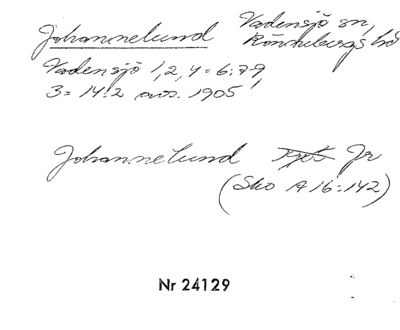 Johannelund Vadensjö sn,
Rönnebergs hd
Vadensjö 1, 2, 4 = 6:7-9,
3 = 14:2 avs. 1905
Johannelund Jr
(Sko A 16:142)
Nr 24129